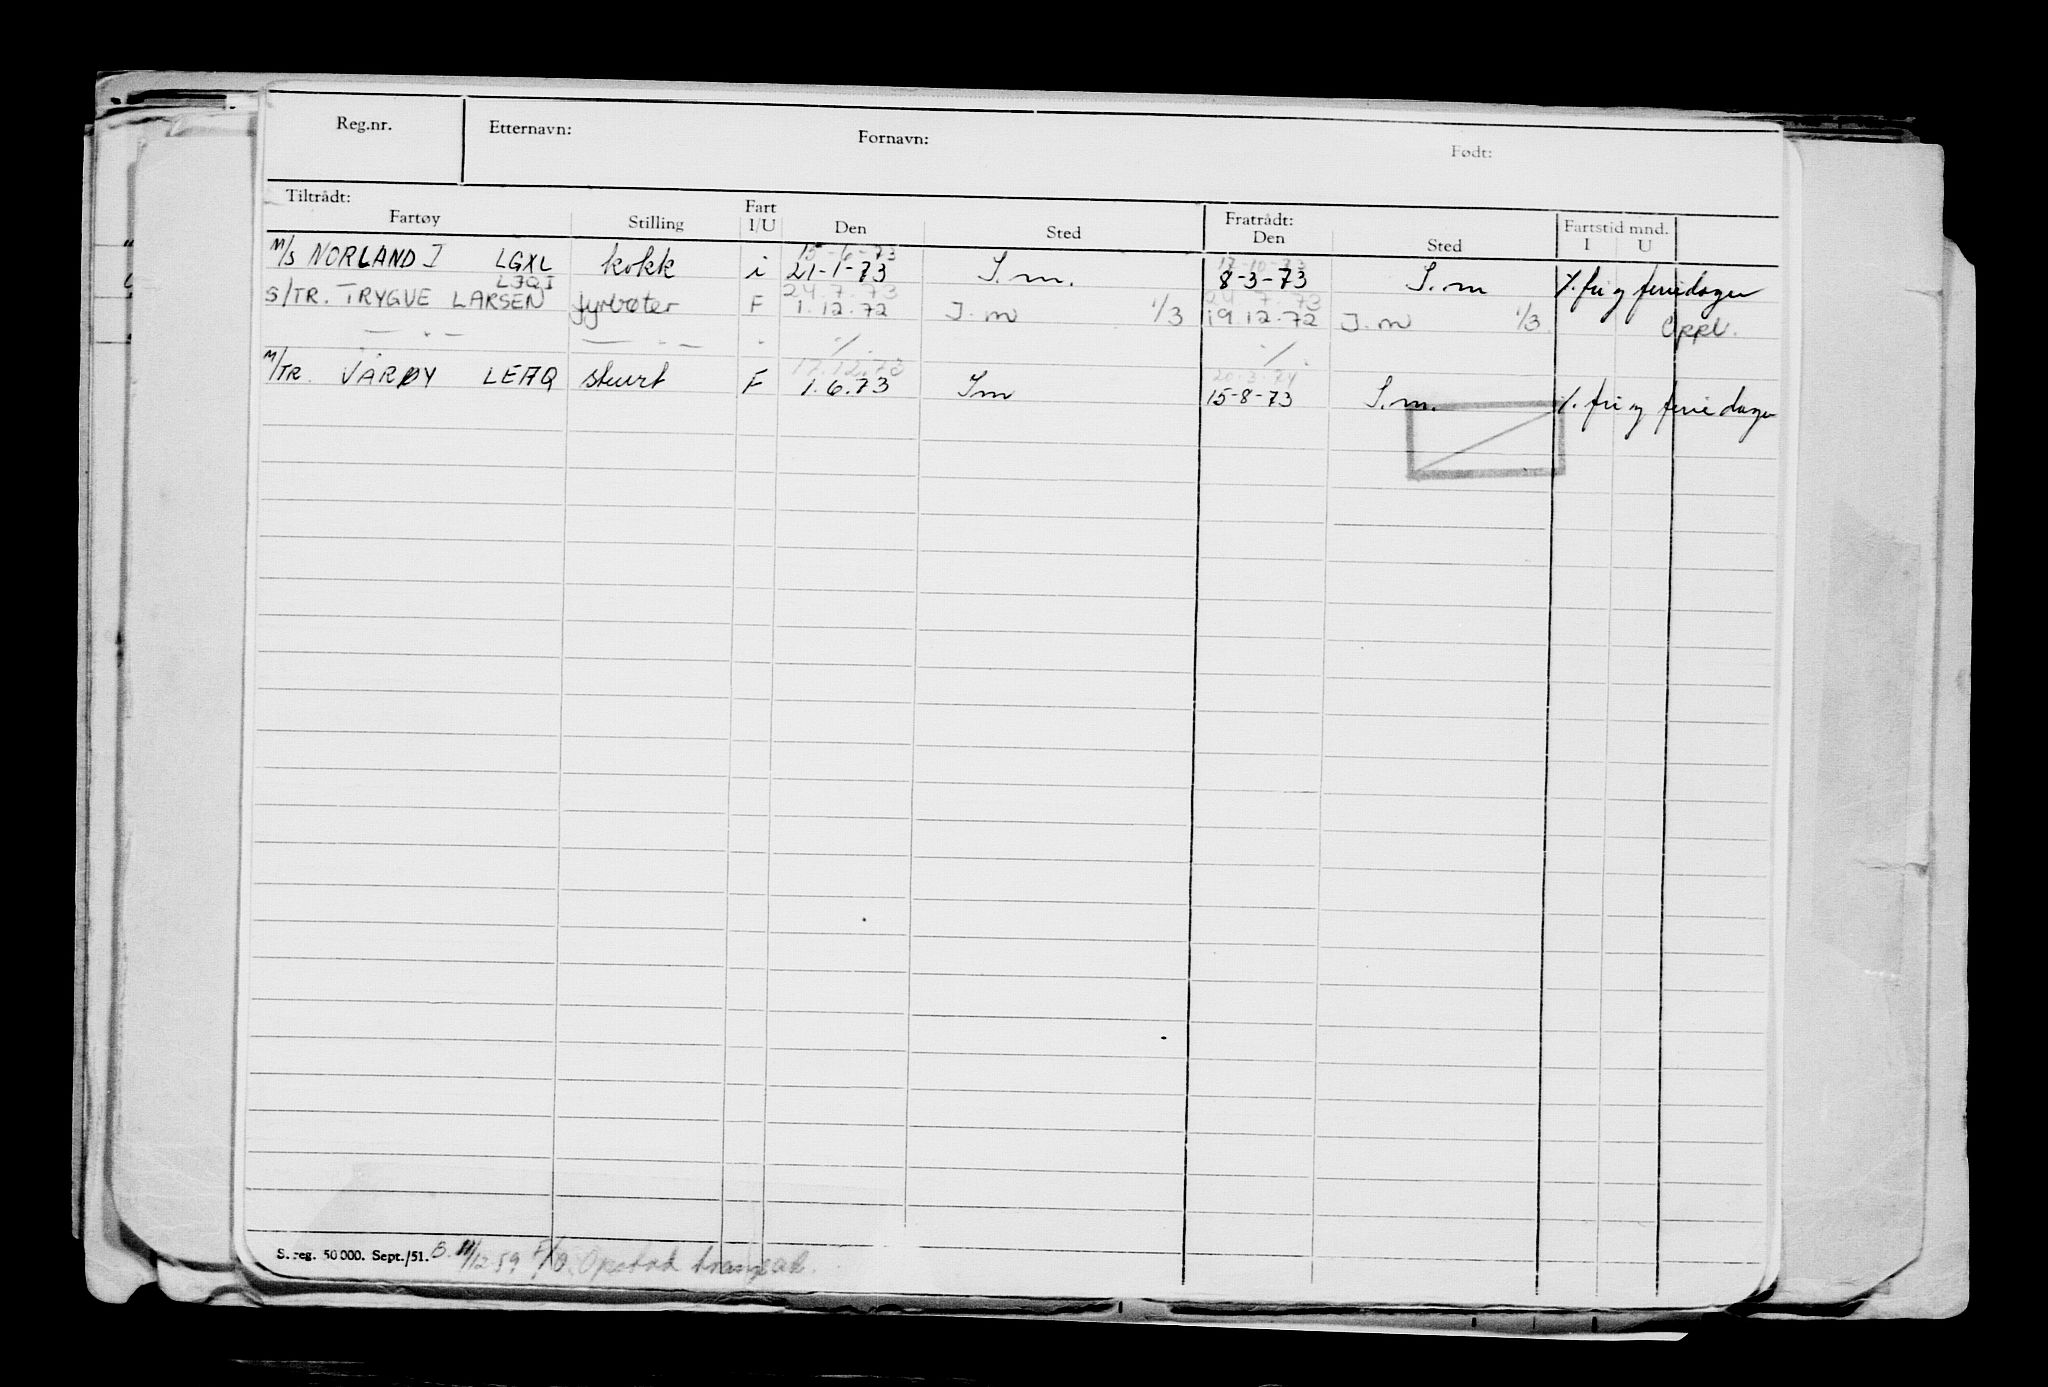 Reg.nr. Etternavn: Fornavn: Født:
Tiltrådt: Fratrådt:
Fartøy Stilling Fart I/U Den Sted Den Sted Fartstid mnd. I U
15-6-73 17-10-73
M/S NORLAND I LGXL kokk i 21-1-73 I.m. 8-3-73 I.m ./. fri og feriedager
LJQI 24.7.73 24.7.73
S/TR. TRYGVE LARSEN fyrbøter F 1.12.72 I.m 1/3 19.12.72 I.m 1/3 Oppl.
— . — — . — . ./. ./.
17.12.73 20.3.74
M/TR. VÆRØY LEAQ stuert F 1.6.73 Im 15-8-73 I.m. ./. fri og feriedager
S.reg. 50 000. Sept./51. B. 11/12.59